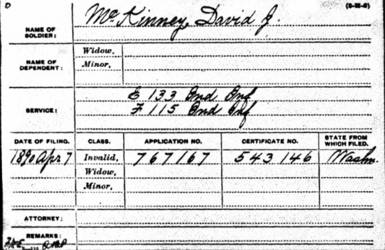 D
McKinney, David J.
(3-25-6)
NAME OF SOLDIER:
NAME OF DEPENDENT:
Widow,
Minor,
SERVICE:
E 133 Ind Inf
F 115 Ind Inf
DATE OF FILING. CLASS. APPLICATION NO. CERTIFICATE NO. STATE FROM WHICH FILED.
1890 Apr 7 Invalid, 767167 543146 Washn.
Widow,
Minor,
ATTORNEY:
REMARKS: